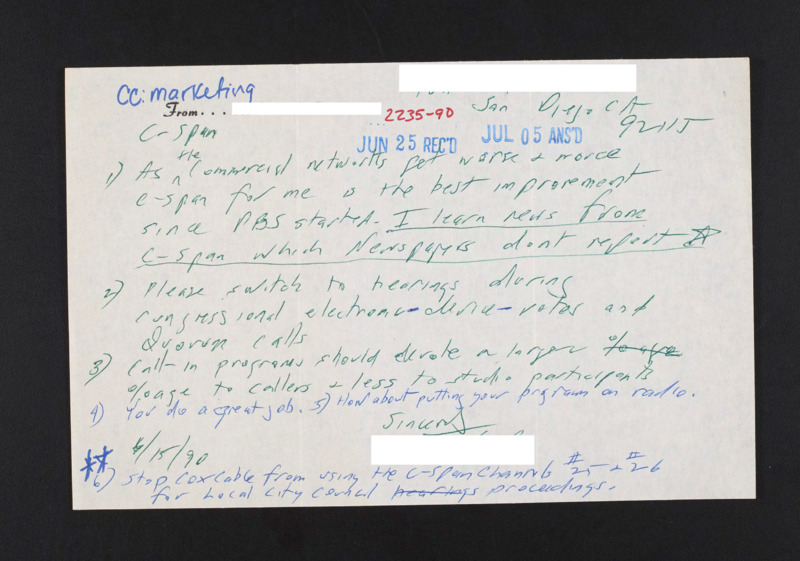 CC: marketing
From...
2235-90
San Diego CA
92115
C-Span
JUN 25 REC'D
JUL 05 ANS'D
1) As the Commercial networks get worse & worse
C-span for me is the best improvement
since PBS started. I learn news from
C-Span which Newspapers dont report
2) Please switch to hearings during
congressional electronic-device-votes and
Quorum Calls
3) Call-in programs should devote a larger %age
%age to callers & less to studio participants
4) You do a great job. 5) How about putting your programs on radio.
Sincerely
/15/90
** 6) Stop Cox cable from using the C-Span Channels #25 & #26
for Local City Council hearings proceedings.